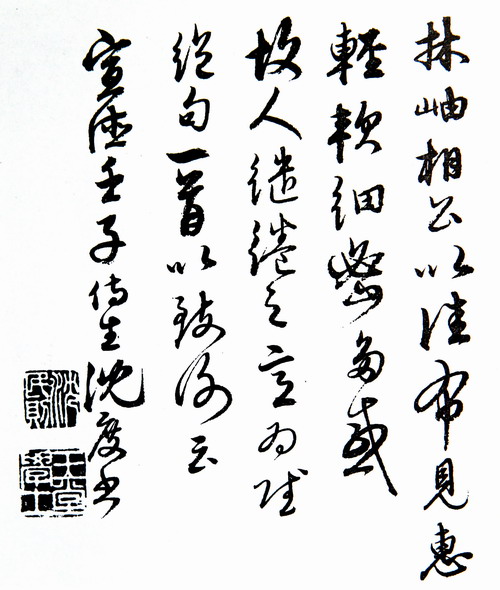 林岫相公以佳布見惠
輕軟細密多感
故人繾綣之意為賦
絕句一首以致謝云
宣德壬子侍生沈度書
沈民則